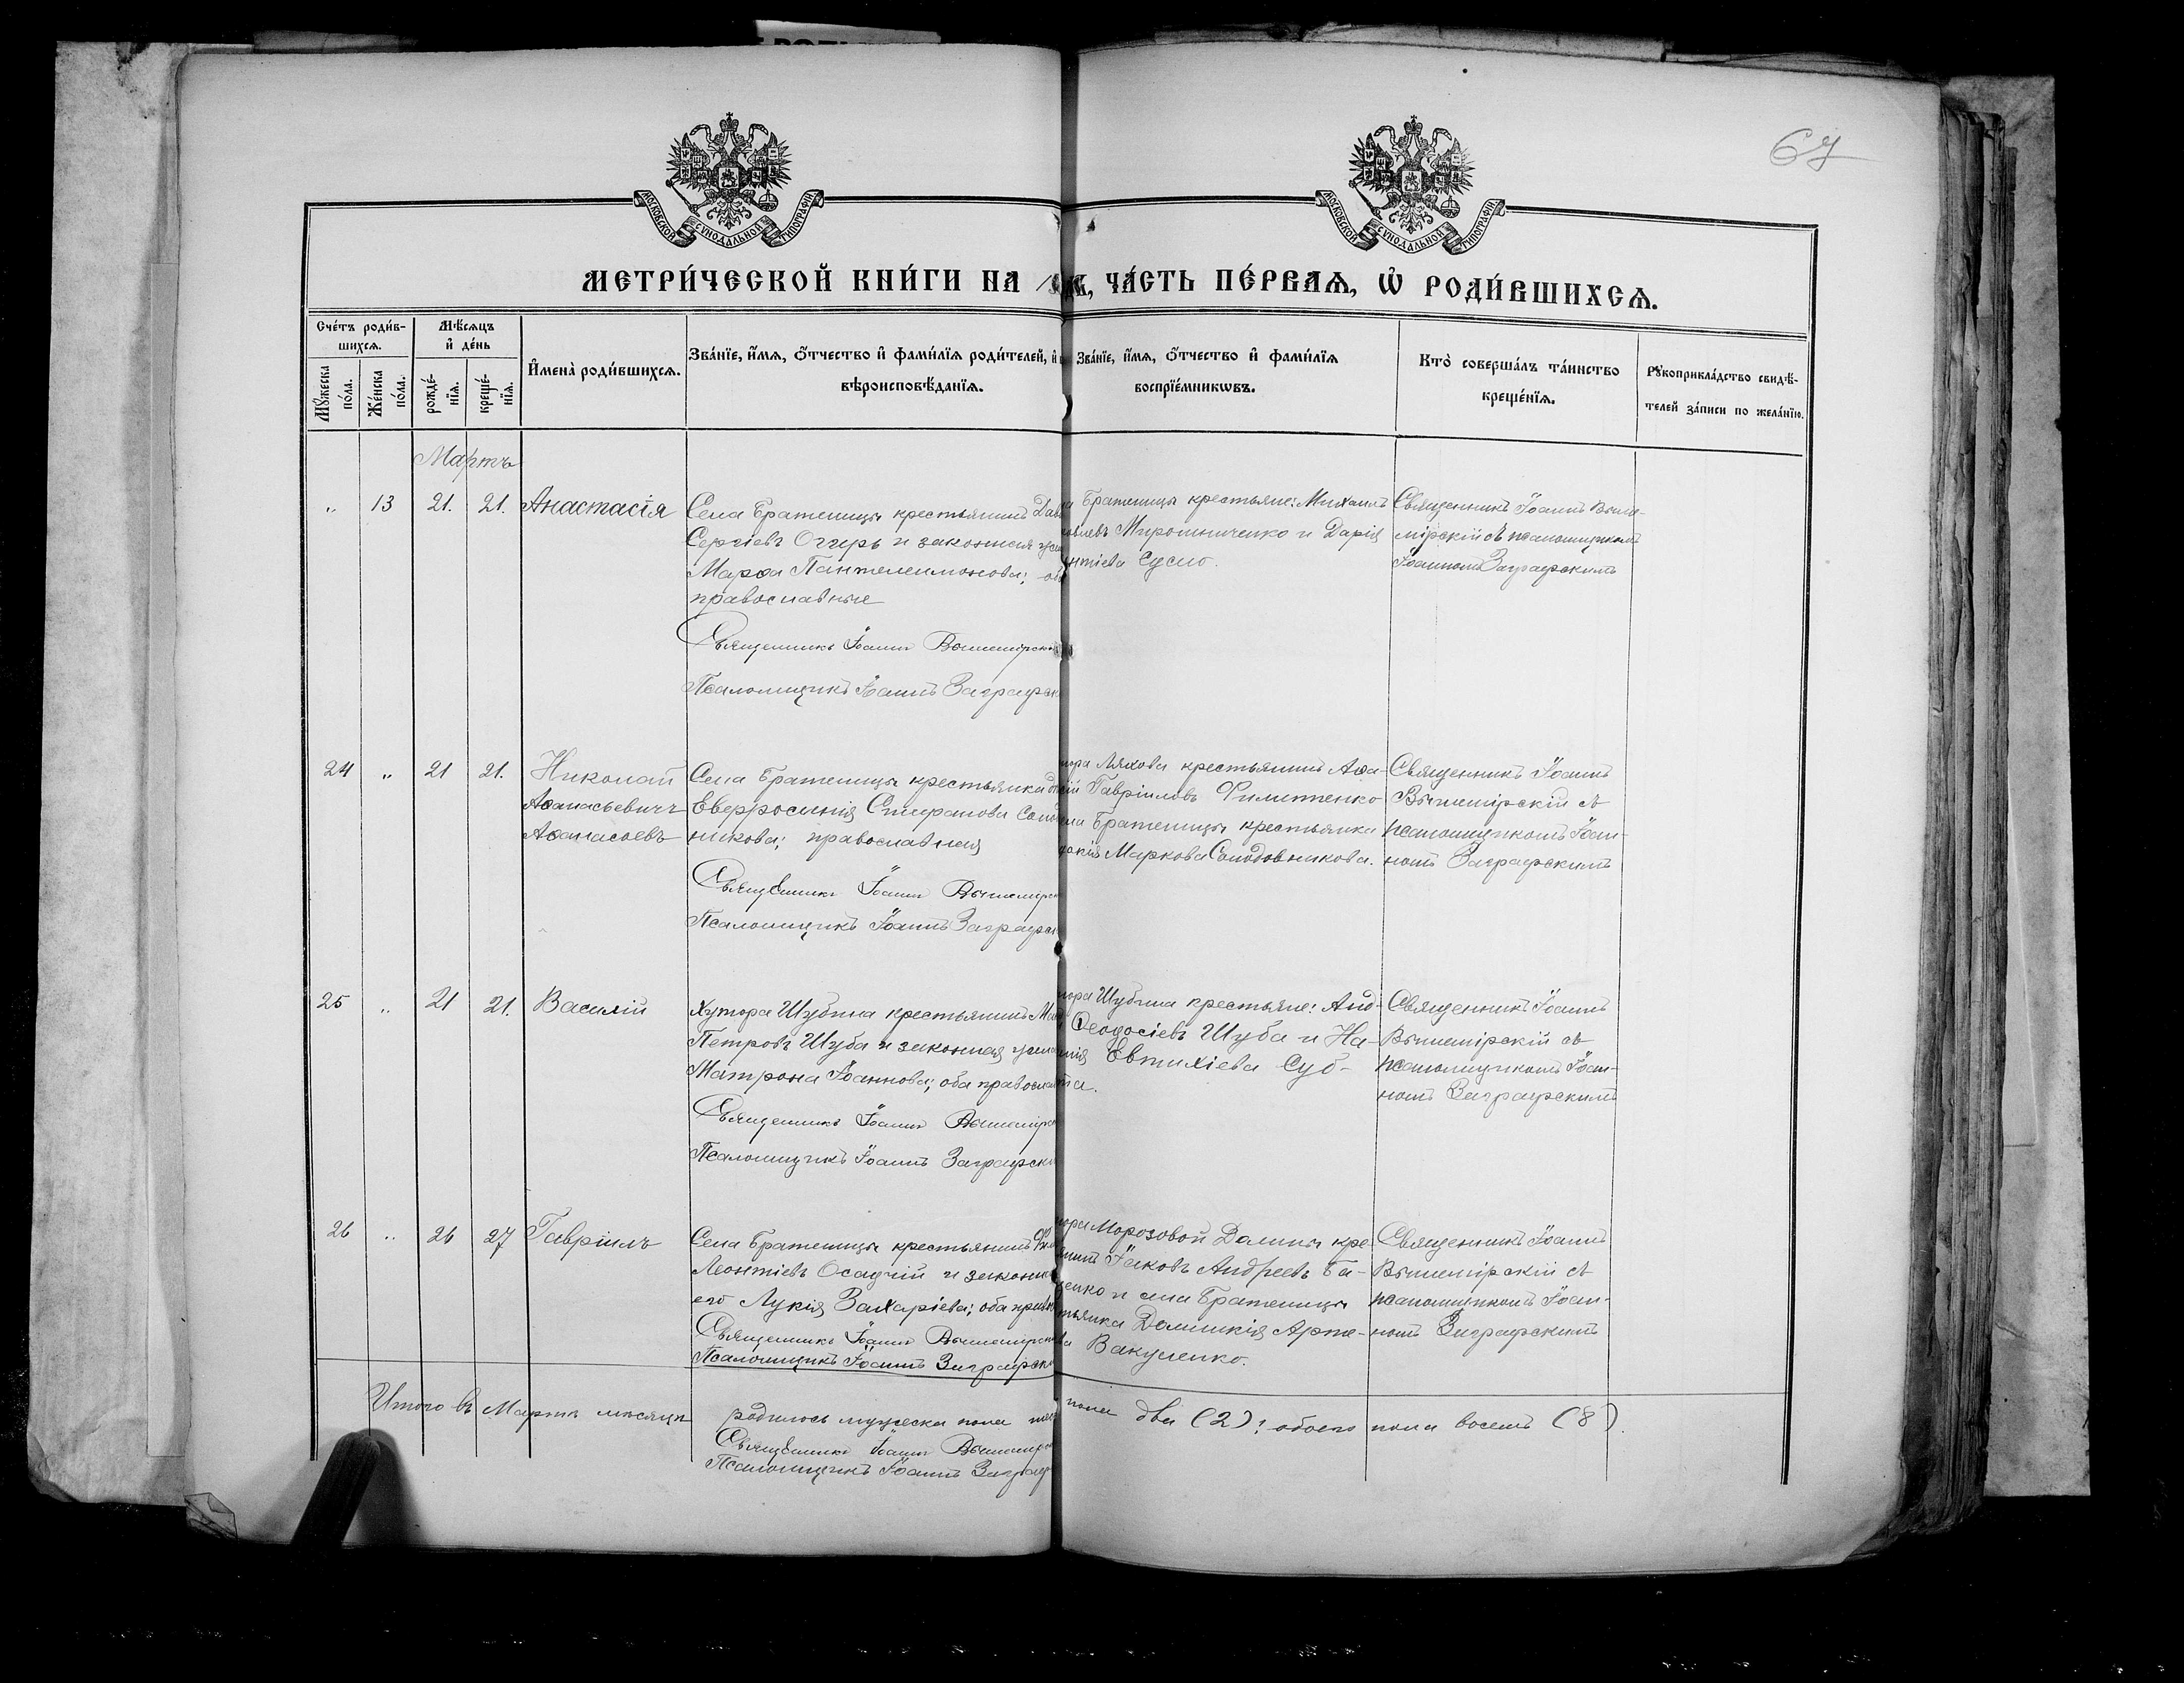 67
МОСКОВСКОЙ СѴНОДАЛЬНОЙ ТИПОГРАФІИ
МОСКОВСКОЙ СѴНОДАЛЬНОЙ ТИПОГРАФІИ
МЕТРИ́ЧЕСКОЙ КНИ́ГИ НА
ЧА́СТЬ ПЕ́РВАѦ, Ѽ РОДИ́ВШИХСѦ.
Сче́тъ роди́в-
шихсѧ.
Мѣ́сѧцъ
и҆ де́нь
Мꙋ́жеска
по́ла.
Же́нска
по́ла.
рожде́-
нїѧ.
креще́-
нїѧ.
И҆мена̀ роди́вшихсѧ.
Зва́нїе, и҆́мѧ, ѻ҆́тчество и҆ фами́лїѧ роди́телей, и҆
вѣроисповѣ́данїѧ.
Зва́нїе, и҆́мѧ, ѻ҆́тчество и҆ фами́лїѧ
воспрїе́мникѡвъ.
Кто̀ соверша́лъ та́инство
креще́нїѧ.
Рꙋкоприкла́дство свидѣ́-
телей за́писи по жела́нїю.
Мартъ
„ 13 21. 21. Анастасія
Села Братеницы крестьянинъ Дав
Сергіевъ Огирь и законная
Марѳа Пантелеимонова;
православные
Священникъ Іоаннъ Вышемірскій
Псаломщикъ Іоаннъ Заграфск
Братеницы крестьяне: Михаилъ
Мирошниченко и Дарія
Сусло.
Священникъ Іоаннъ Выше-
мірскій съ псаломщикомъ
Іоанномъ Заграфскимъ
24 „ 21 21. Николай
Аѳанасьевичъ
Аѳанасьевъ
Села Братеницы крестьянка
Евфросинія Спиридонова Солод
никова; православная
Священникъ Іоаннъ Вышемірск
Псаломщикъ Іоаннъ Заграфск
тора Ляхова крестьянинъ Аѳа-
сій Гавріиловъ Филипенко
ела Братеницы крестьянка
докія Маркова Солодовникова.
Священникъ Іоаннъ
Вышемірскій съ
псаломщикомъ Іоан-
номъ Заграфскимъ
25 „ 21 21. Василій
Хутора Шубина крестьянинъ
Петровъ Шуба и законная
Матрона Іоаннова; оба правосла
Священникъ Іоаннъ Вышемірск
Псаломщикъ Іоаннъ Заграфск
тора Шубина крестьяне: Анд-
Ѳеодосіевъ Шуба и На-
Евтихіева Суб-
та.
Священникъ Іоаннъ
Вышемірскій съ
псаломщикомъ Іоан-
номъ Заграфскимъ
26 „ 26 27 Гавріилъ
Села Братеницы крестьянинъ
Леонтіевъ Осадчій и законн
его Лукія Захаріева; оба прав
Священникъ Іоаннъ Вышемірск
Псаломщикъ Іоаннъ Заграфск
тора Морозовой Долины кре-
Іаковъ Андреевъ Ба-
ценко и села Братеницы
стьянка Домникія Арте-
ва Вакуленко.
Священникъ Іоаннъ
Вышемірскій съ
псаломщикомъ Іоан-
номъ Заграфскимъ
Итого въ Мартѣ мѣсяцѣ родилось мужеска пола
пола два (2); обоего пола восемь (8).
Священникъ Іоаннъ Вышемірск
Псаломщикъ Іоаннъ Заграф